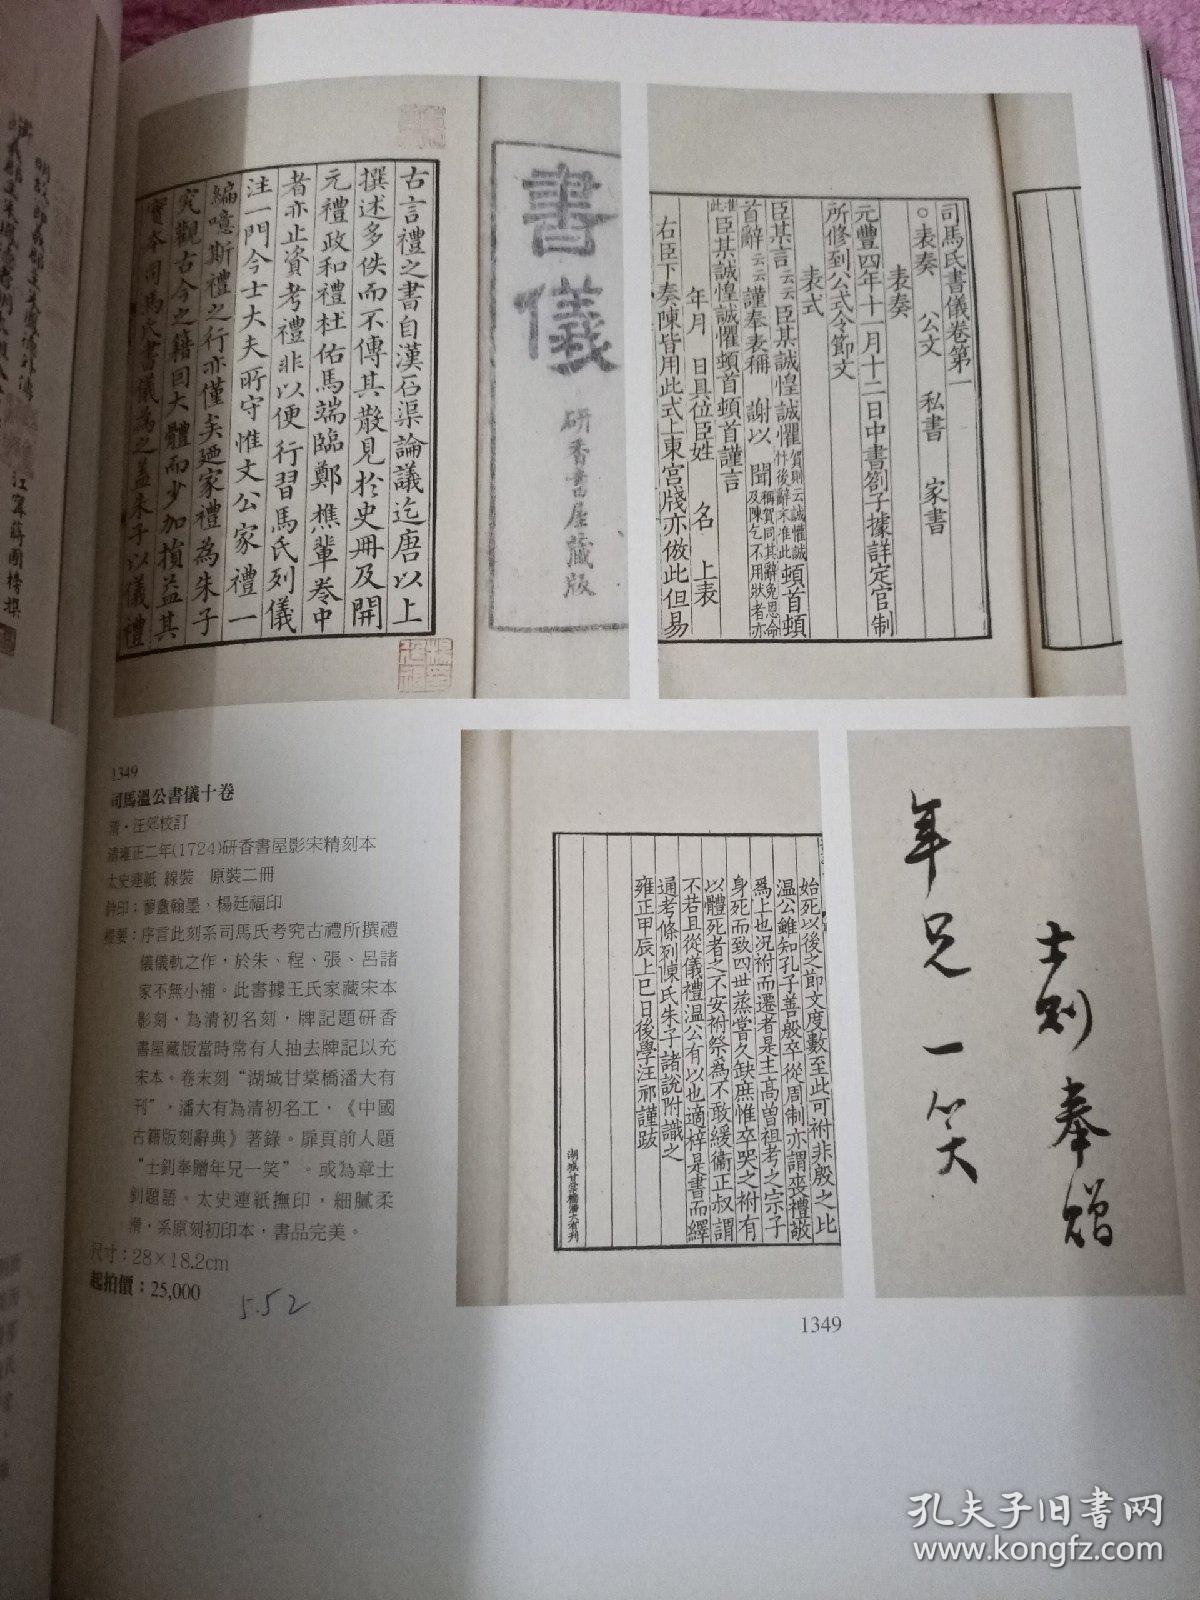 古言禮之書自漢石渠論議迄唐以上
撰述多佚而不傳其散見於史冊及開
元禮政和禮杜佑馬端臨鄭樵輩卷中
者亦止資考禮非以便行習馬氏列儀
注一門今士大夫所守惟文公家禮一
編噫斯禮之行亦僅矣廼家禮為朱子
究觀古今之籍因大體而少加損益其
實本司馬氏書儀為之蓋朱子以儀禮
書儀
研香書屋藏版
司馬氏書儀卷第一
○表奏 公文 私書 家書
表奏
元豐四年十一月十二日中書劄子據詳定官制
所修到公式令節文
表式
臣某言云云臣某誠惶誠懼賀則云誠懽誠忭後辭末准此頓首頓
首辭云云謹奉表稱 謝以 聞稱賀同其辭免恩命及陳乞不用狀者亦
准此臣某誠惶誠懼頓首頓首謹言
年月 日具位臣姓 名 上表
右臣下奏陳皆用此式上東宮牋亦倣此但易
1349
司馬溫公書儀十卷
清·汪郊校訂
清雍正二年(1724)研香書屋影宋精刻本
太史連紙 線裝 原裝二冊
鈐印：蓼盦翰墨、楊廷福印
提要：序言此刻系司馬氏考究古禮所撰禮
儀儀軌之作，於朱、程、張、呂諸
家不無小補。此書據王氏家藏宋本
影刻，為清初名刻，牌記題研香
書屋藏版當時常有人抽去牌記以充
宋本。卷末刻“湖城甘棠橋潘大有
刊”，潘大有為清初名工，《中國
古籍版刻辭典》著錄。扉頁前人題
“士釗奉贈年兄一笑”。或為章士
釗題語。太史連紙撫印，細膩柔
滑，系原刻初印本，書品完美。
尺寸：28×18.2cm
起拍價：25,000
5.52
始死以後之節文度數至此可祔非殷之比
溫公雖知孔子善殷卒從周制亦謂喪禮敬
爲上也況祔而遷者是主高曾祖考之宗子
身死而致四世蒸嘗久缺庶惟卒哭之祔有
以體死者之不安祔祭爲不敢緩衞正叔謂
不若且從儀禮溫公有以也適梓是書而繹
通考條列陳氏朱子諸說附識之
雍正甲辰上巳日後學汪祁謹跋
湖城甘棠橋潘大有刋
士釗奉贈
年兄一笑
1349
江寧蔣國榜撰
孔夫子旧书网
www.kongfz.com